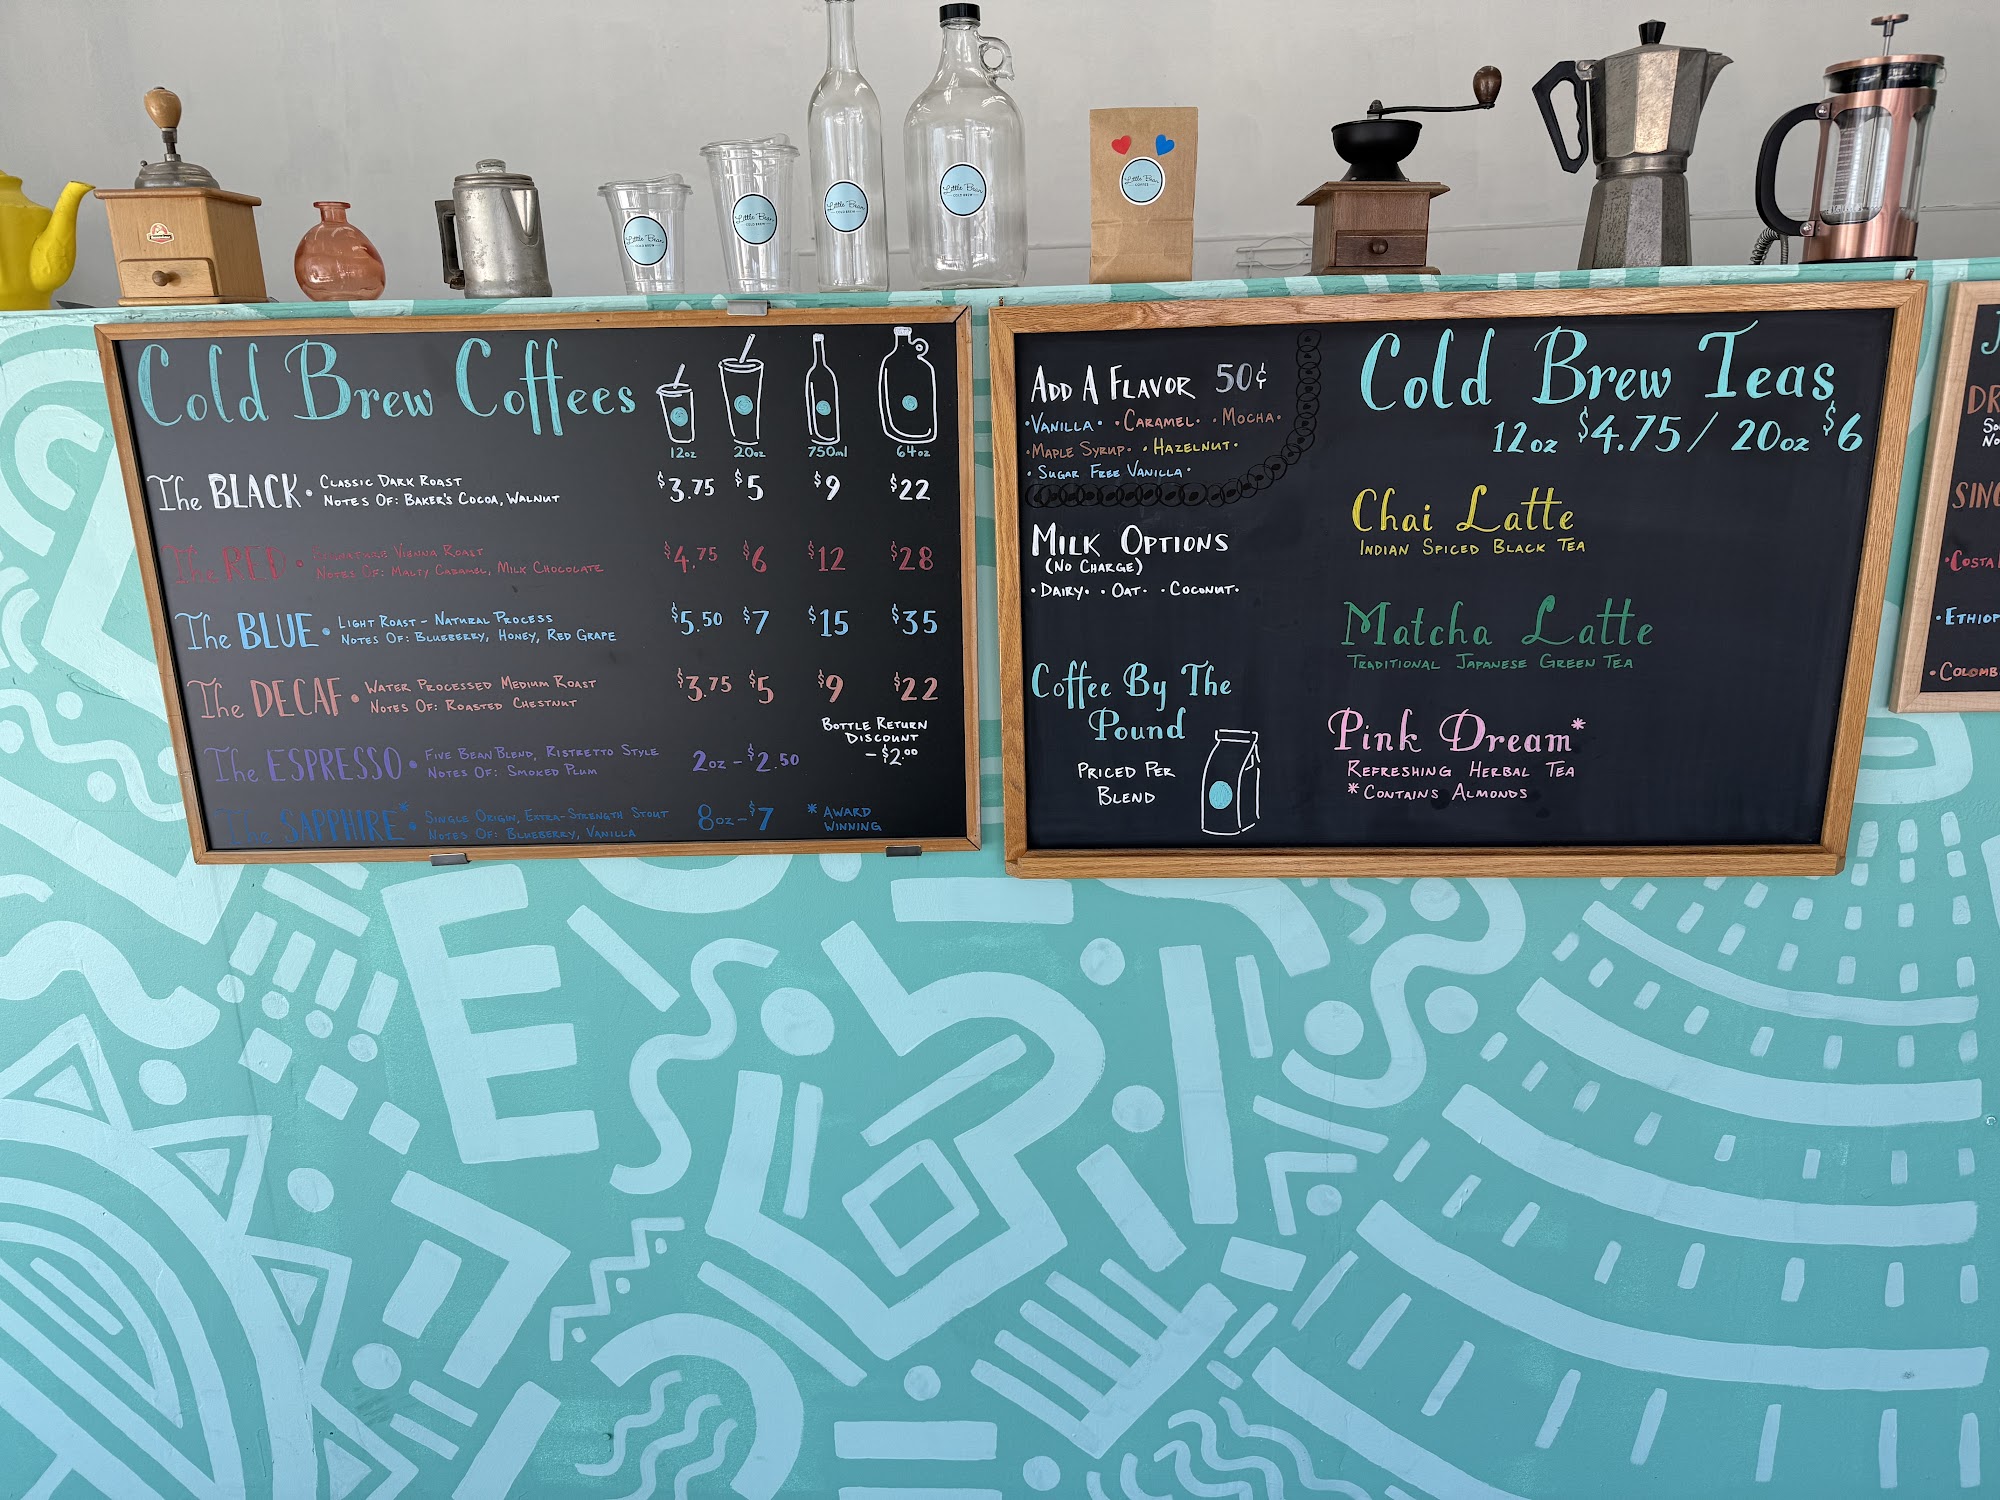 Little Bean
COLD BREW
Little Bean
COLD BREW
Little Bean
COLD BREW
Little Bean
COLD BREW
Little Bean
COFFEE
Cold Brew Coffees
12oz 20oz 750ml 64oz
The BLACK • CLASSIC DARK ROAST
NOTES OF: BAKER'S COCOA, WALNUT
$3.75 $5 $9 $22
The RED • SIGNATURE VIENNA ROAST
NOTES OF: MALTY CARAMEL, MILK CHOCOLATE
$4.75 $6 $12 $28
The BLUE • LIGHT ROAST - NATURAL PROCESS
NOTES OF: BLUEBERRY, HONEY, RED GRAPE
$5.50 $7 $15 $35
The DECAF • WATER PROCESSED MEDIUM ROAST
NOTES OF: ROASTED CHESTNUT
$3.75 $5 $9 $22
BOTTLE RETURN
DISCOUNT
-$2.00
The ESPRESSO • FIVE BEAN BLEND, RISTRETTO STYLE
NOTES OF: SMOKED PLUM
2oz - $2.50
The SAPPHIRE* • SINGLE ORIGIN, EXTRA-STRENGTH STOUT
NOTES OF: BLUEBERRY, VANILLA
8oz - $7
* AWARD
WINNING
ADD A FLAVOR 50¢
• VANILLA • • CARAMEL • • MOCHA •
• MAPLE SYRUP • • HAZELNUT •
• SUGAR FREE VANILLA •
MILK OPTIONS
(NO CHARGE)
• DAIRY • • OAT • • COCONUT •
Coffee By The
Pound
PRICED PER
BLEND
Cold Brew Teas
12oz $4.75 / 20oz $6
Chai Latte
INDIAN SPICED BLACK TEA
Matcha Latte
TRADITIONAL JAPANESE GREEN TEA
Pink Dream*
REFRESHING HERBAL TEA
* CONTAINS ALMONDS
J
DR
SO
NO
SING
• COSTA
• ETHIOP
• COLOMB